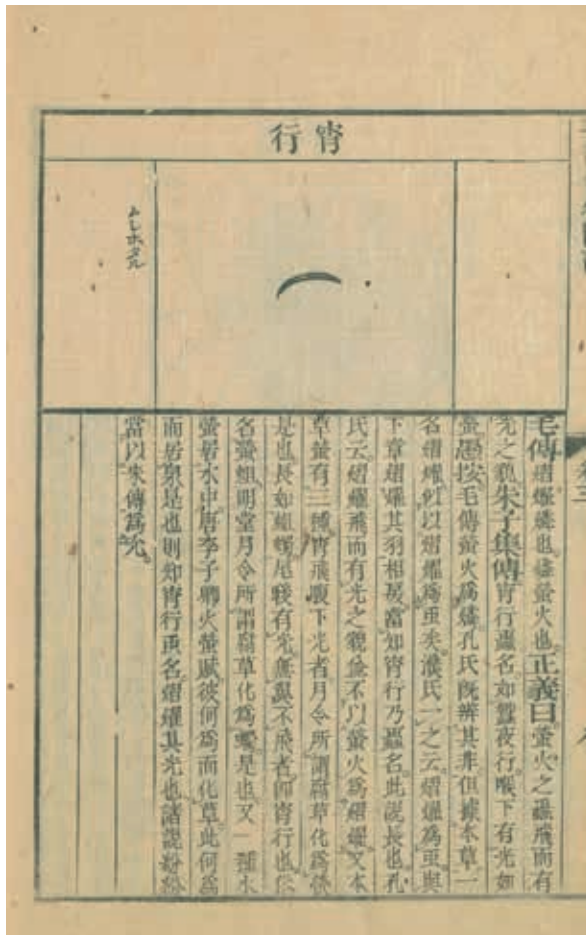 宵行
毛傳熠燿燐也燐螢火也正義曰螢火之蟲飛而有
光之貌朱子集傳宵行蟲名如蠶夜行喉下有光如
螢愚按毛傳螢火為燐孔氏既辨其非但據本草一
名熠燿似以熠燿為蟲矣濮氏一之云熠燿為蟲與
下章熠燿其羽相戾當知宵行乃蟲名此說長也孔
氏云熠燿飛而有光之貌並不以螢火為熠燿又本
草螢有三種宵飛腹下光者月令所謂腐草化為螢
是也長如蛆蠋尾後有光無翼不飛者即宵行也
名螢蛆明堂月令所謂腐草化為蠲是也又一種水
螢居水中唐李子卿水螢賦彼何為而化草此何為
而居泉是也則知宵行蟲名熠燿其光也諸說紛紛
當以朱傳為允